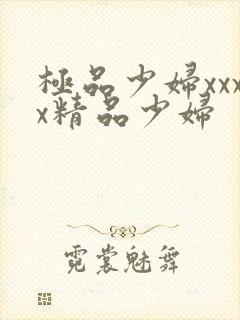 極品少婦xxx
x精品少婦
霓裳魅舞